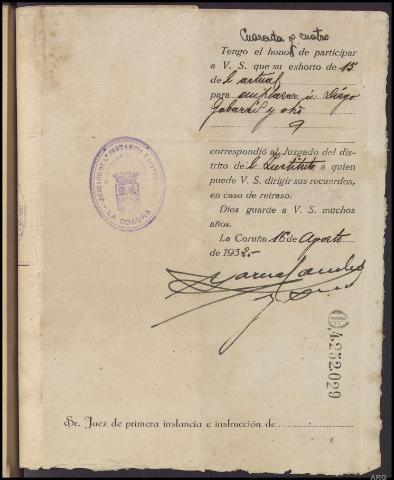 Cuarenta y cuatro
Tengo el honor de participar
a V. S. que su exhorto de 15
del actual
para emplazar á Diego
y otro
correspondió al Juzgado del dis-
trito del Instituto a quien
puede V. S. dirigir sus recuerdos,
en caso de retraso.
Dios guarde a V. S. muchos
años.
La Coruña 16 de Agosto
de 1932.-
LA CORUÑA
4.252.029
Sr. Juez de primera instancia e instrucción de
ARG